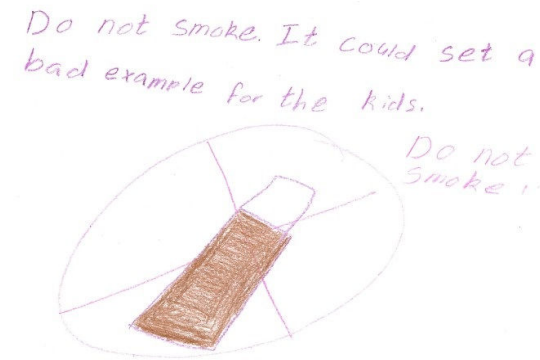 Do not smoke. It could set a
bad example for the kids.
Do not
Smoke!